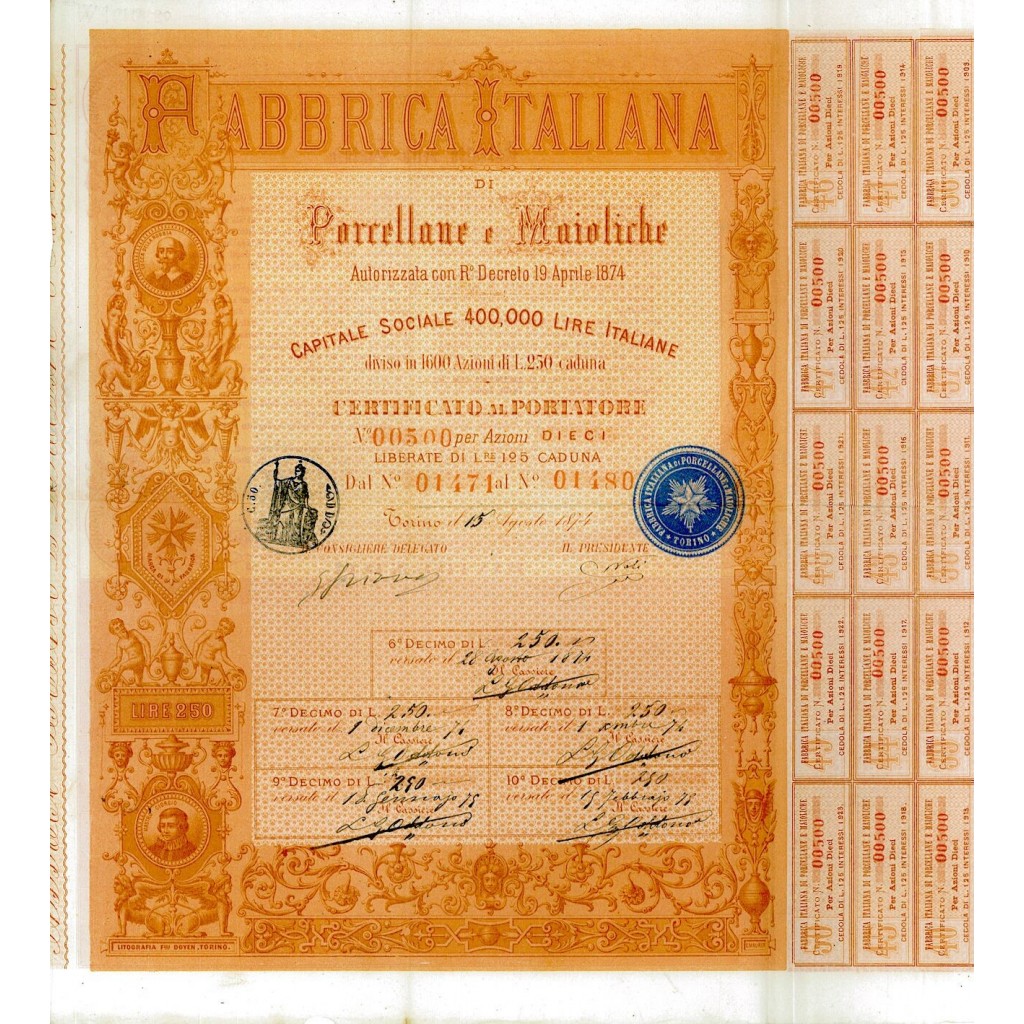 FABBRICA ITALIANA
DI
Porcellane e Maioliche
Autorizzata con Rº Decreto 19 Aprile 1874
CAPITALE SOCIALE 400,000 LIRE ITALIANE
diviso in 1600 Azioni di L. 250 caduna
CERTIFICATO AL PORTATORE
Nº 00500 per Azioni DIECI
LIBERATE DI LRE 125 CADUNA
Dal Nº 01471 al Nº 01480
C. 50.
FABBRICA ITALIANA DI PORCELLANE E MAIOLICHE
TORINO
Torino il 15 Agosto 1874
CONSIGLIERE DELEGATO
IL PRESIDENTE
6º DECIMO DI L. 250.
versato il 20 Agosto 1874
Il Cassiere
LIRE 250
7º DECIMO DI L. 250
versato il 1 dicembre 74
Il Cassiere
8º DECIMO DI L. 250
versato il 1 xmbre 74
Il Cassiere
9º DECIMO DI L. 250
versato il 1º Gennajo 75
Il Cassiere
10º DECIMO DI L. 250
versato il 15 Febbrajo 75
Il Cassiere
LITOGRAFIA FLLI DOYEN, TORINO.
FABBRICA ITALIANA DI PORCELLANE E MAIOLICHE
CERTIFICATO N. 00500
Per Azioni Dieci
CEDOLA DI L. 125 INTERESSI 1919.
FABBRICA ITALIANA DI PORCELLANE E MAIOLICHE
CERTIFICATO N. 00500
Per Azioni Dieci
CEDOLA DI L. 125 INTERESSI 1914.
FABBRICA ITALIANA DI PORCELLANE E MAIOLICHE
CERTIFICATO N. 00500
Per Azioni Dieci
CEDOLA DI L. 125 INTERESSI 1909.
FABBRICA ITALIANA DI PORCELLANE E MAIOLICHE
CERTIFICATO N. 00500
Per Azioni Dieci
CEDOLA DI L. 125 INTERESSI 1920.
FABBRICA ITALIANA DI PORCELLANE E MAIOLICHE
CERTIFICATO N. 00500
Per Azioni Dieci
CEDOLA DI L. 125 INTERESSI 1915.
FABBRICA ITALIANA DI PORCELLANE E MAIOLICHE
CERTIFICATO N. 00500
Per Azioni Dieci
CEDOLA DI L. 125 INTERESSI 1910.
FABBRICA ITALIANA DI PORCELLANE E MAIOLICHE
CERTIFICATO N. 00500
Per Azioni Dieci
CEDOLA DI L. 125 INTERESSI 1921.
FABBRICA ITALIANA DI PORCELLANE E MAIOLICHE
CERTIFICATO N. 00500
Per Azioni Dieci
CEDOLA DI L. 125 INTERESSI 1916.
FABBRICA ITALIANA DI PORCELLANE E MAIOLICHE
CERTIFICATO N. 00500
Per Azioni Dieci
CEDOLA DI L. 125 INTERESSI 1911.
FABBRICA ITALIANA DI PORCELLANE E MAIOLICHE
CERTIFICATO N. 00500
Per Azioni Dieci
CEDOLA DI L. 125 INTERESSI 1922.
FABBRICA ITALIANA DI PORCELLANE E MAIOLICHE
CERTIFICATO N. 00500
Per Azioni Dieci
CEDOLA DI L. 125 INTERESSI 1917.
FABBRICA ITALIANA DI PORCELLANE E MAIOLICHE
CERTIFICATO N. 00500
Per Azioni Dieci
CEDOLA DI L. 125 INTERESSI 1912.
FABBRICA ITALIANA DI PORCELLANE E MAIOLICHE
CERTIFICATO N. 00500
Per Azioni Dieci
CEDOLA DI L. 125 INTERESSI 1923.
FABBRICA ITALIANA DI PORCELLANE E MAIOLICHE
CERTIFICATO N. 00500
Per Azioni Dieci
CEDOLA DI L. 125 INTERESSI 1918.
FABBRICA ITALIANA DI PORCELLANE E MAIOLICHE
CERTIFICATO N. 00500
Per Azioni Dieci
CEDOLA DI L. 125 INTERESSI 1913.